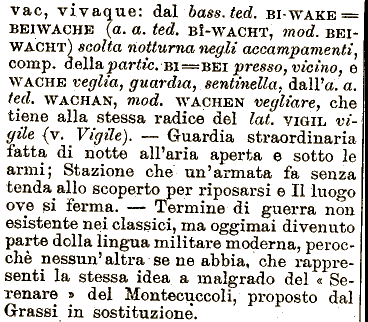 vac, vivaque: dal bass. ted. BI-WAKE =
BEIWACHE (a. a. ted. BÎ-WACHT, mod. BEI-
WACHT) scolta notturna negli accampamenti,
comp. della partic. BI = BEI presso, vicino, e
WACHE veglia, guardia, sentinella, dall'a. a.
ted. WACHAN, mod. WACHEN vegliare, che
tiene alla stessa radice del lat. VIGIL vi-
gile (v. Vigile). — Guardia straordinaria
fatta di notte all'aria aperta e sotto le
armi; Stazione che un'armata fa senza
tenda allo scoperto per riposarsi e Il luogo
ove si ferma. — Termine di guerra non
esistente nei classici, ma oggimai divenuto
parte della lingua militare moderna, peroc-
chè nessun'altra se ne abbia, che rappre-
senti la stessa idea a malgrado del « Se-
renare » del Montecuccoli, proposto dal
Grassi in sostituzione.